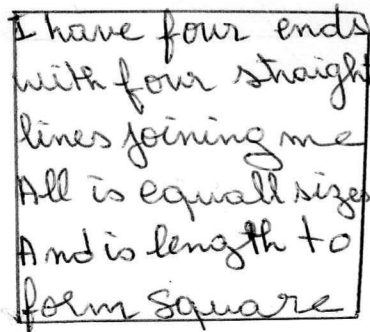 I have four ends
with four straight
lines joining me
All is equall sizes
And is length to
form Square